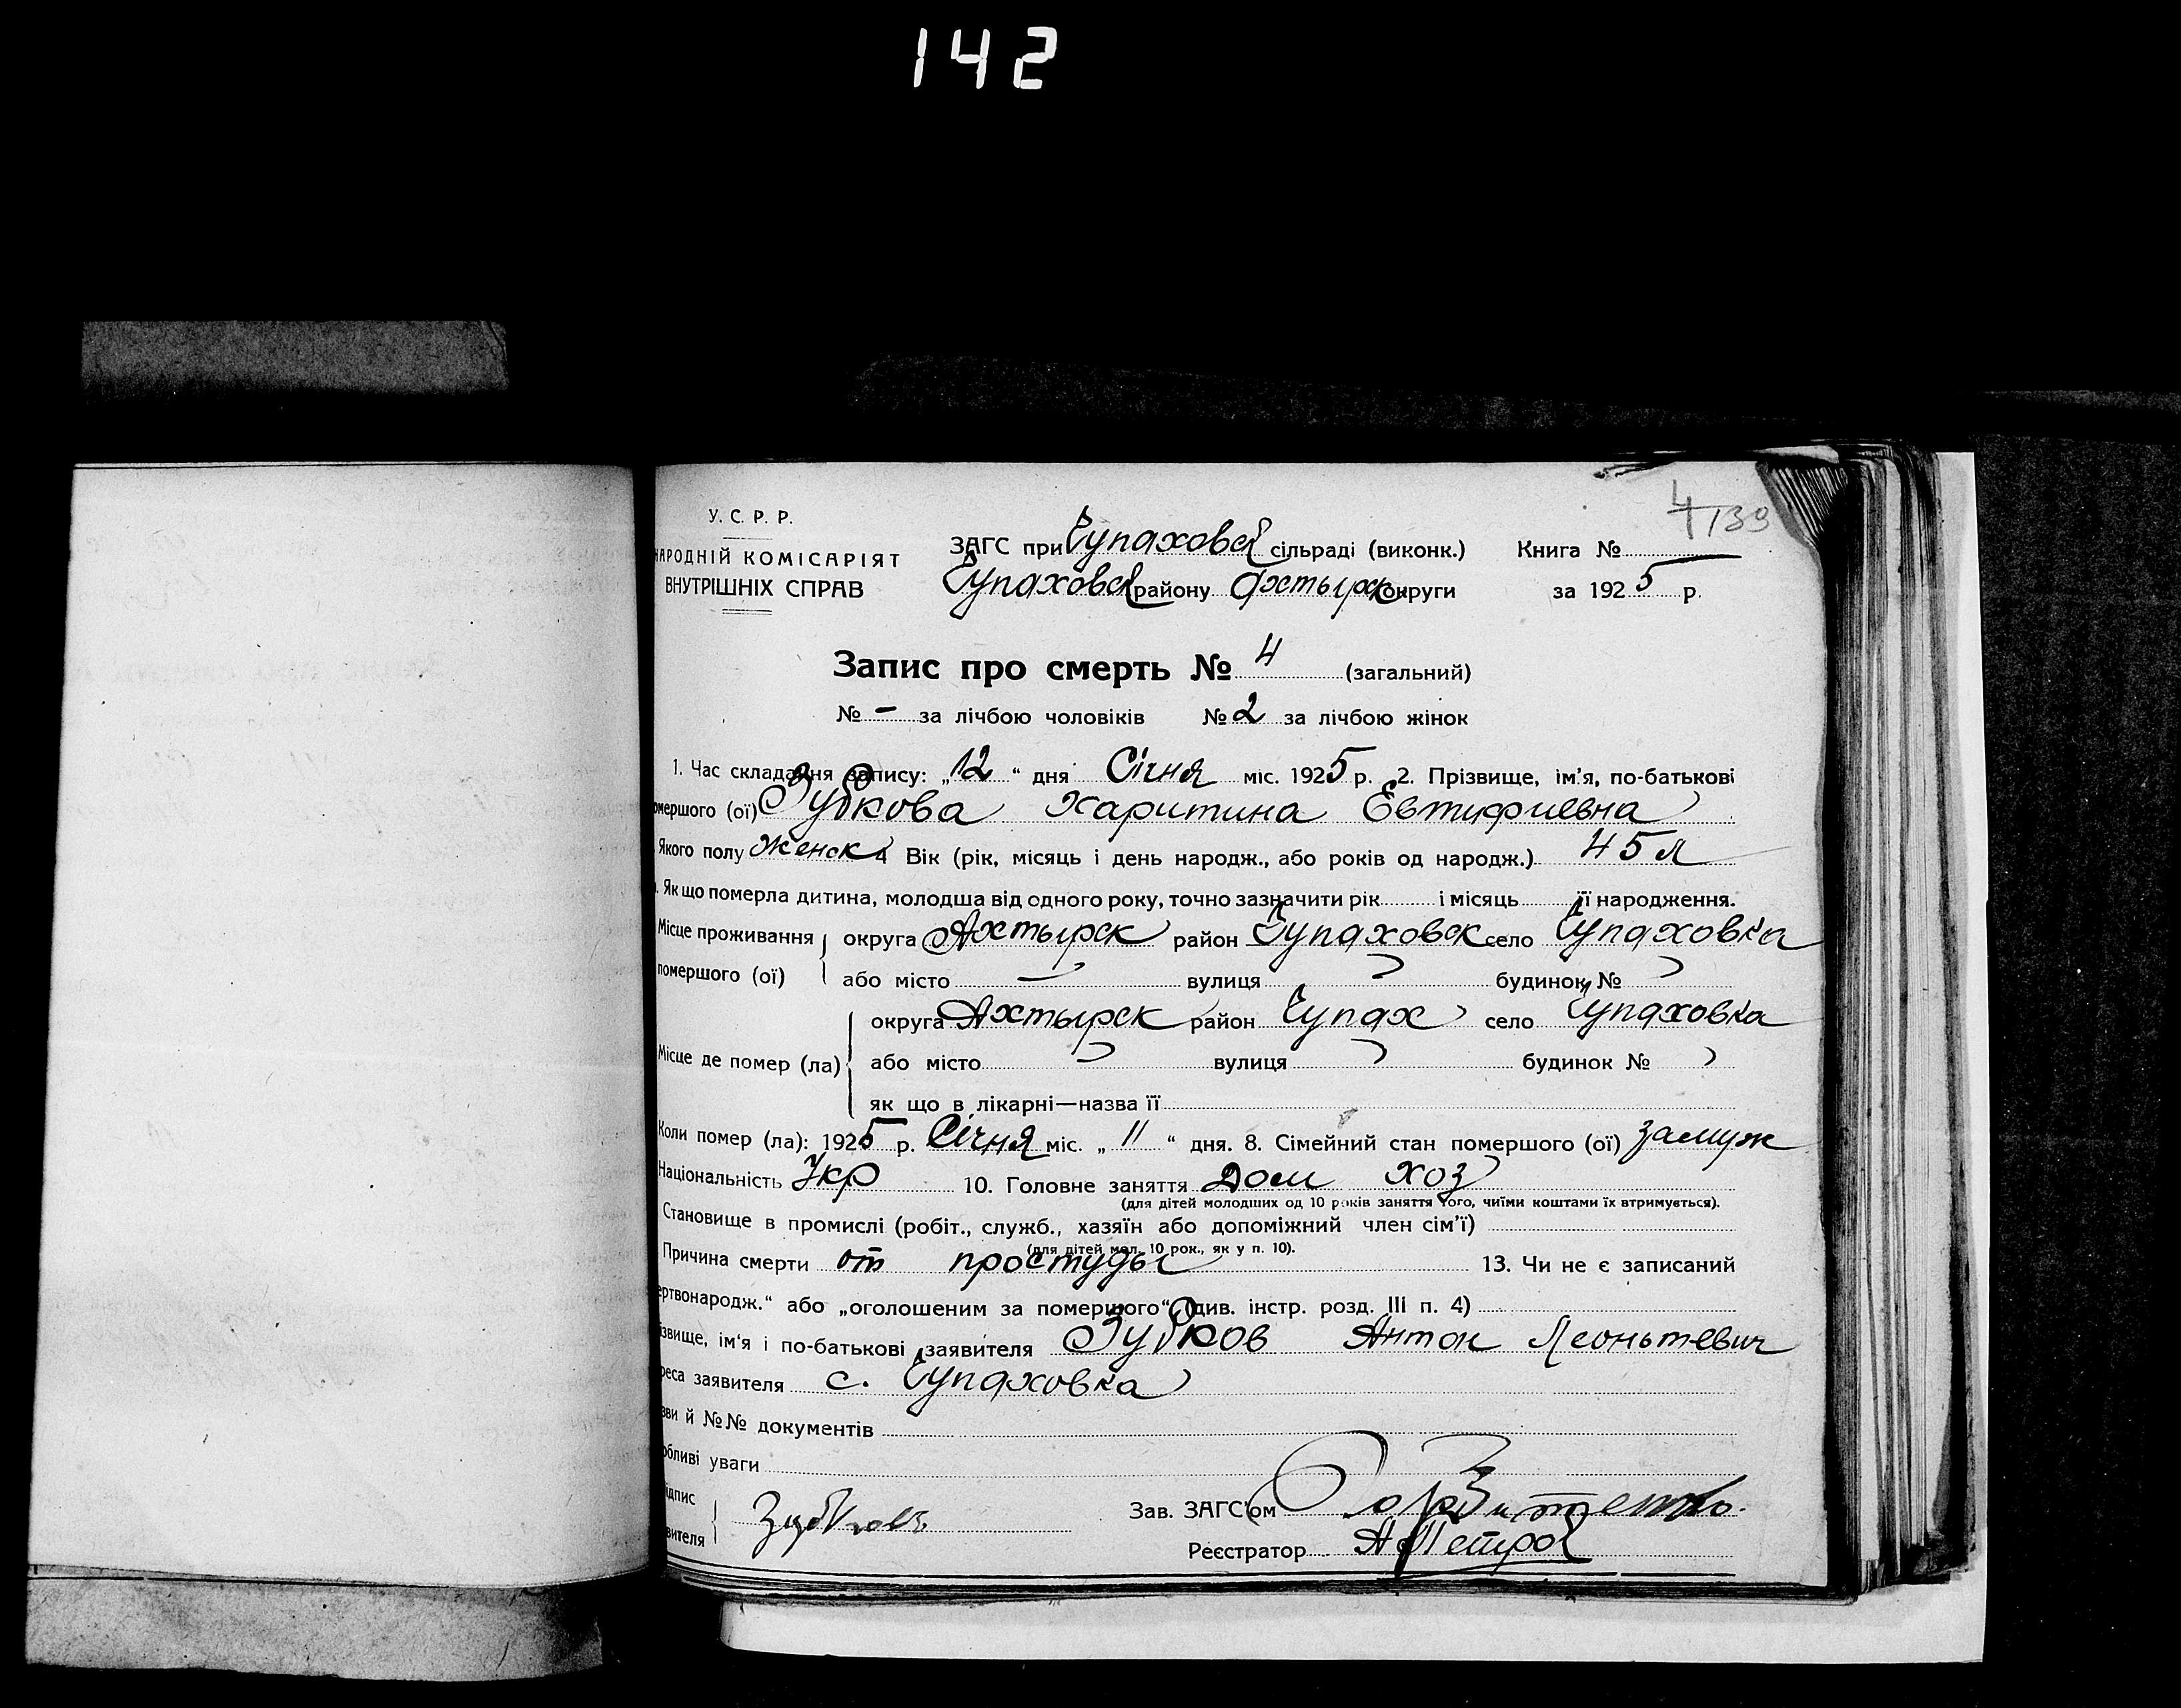 142
4
139
У. С. Р. Р.
НАРОДНІЙ КОМІСАРІЯТ
ВНУТРІШНІХ СПРАВ
ЗАГС при Чупаховс сільраді (виконк.) Книга №
Чупаховс району Ахтырск округи за 1925 р.
Запис про смерть № 4 (загальний)
№ – за лічбою чоловіків № 2 за лічбою жінок
1. Час складання запису: „12“ дня Січня міс. 1925 р. 2. Прізвище, ім'я, по-батькові
омершого (ої) Зубкова Харитина Евтифиевна
Якого полу Женск 4 Вік (рік, місяць і день народж., або років од народж.) 45 л
. Як що померла дитина, молодша від одного року, точно зазначити рік і місяць її народження.
Місце проживання округа Ахтырск район Чупаховск село Чупаховка
помершого (ої) або місто вулиця будинок №
округа Ахтырск район Чупах село Чупаховка
Місце де помер (ла) або місто вулиця будинок №
як що в лікарні—назва її
Коли помер (ла): 1925 р. Січня міс. „11“ дня. 8. Сімейний стан помершого (ої) замуж
Національність Укр 10. Головне заняття Дом хоз
(для дітей молодших од 10 років заняття того, чиїми коштами їх втримується).
Становище в промислі (робіт., служб., хазяїн або допоміжний член сім'ї)
(для дітей мол. 10 рок., як у п. 10).
Причина смерти от простуды 13. Чи не є записаний
ертвонародж.“ або „оголошеним за помершого“ (див. інстр. розд. III п. 4)
ізвище, ім'я і по-батькові заявителя Зубков Антон Леонтьевич
реса заявителя с. Чупаховка
зви й №№ документів
обливі уваги
ідпис
вителя Зубковъ
Зав. ЗАГС'ом
Реєстратор А Петров